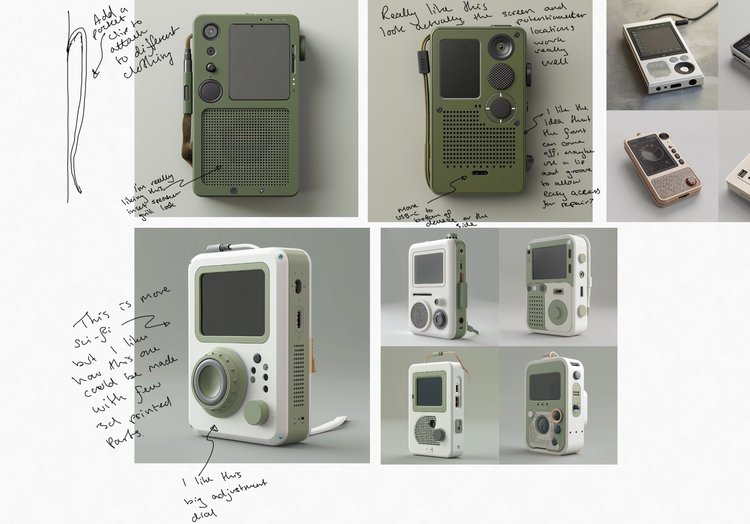 Add a
pocket
clip to
attach
to different
clothing
I'm really
liking this
inset speaker
grill look
Really like this
look actually the screen and
potentiometer
locations
work
really
well
I like the
idea that
the front
can come
off, maybe
use a lip
and groove
to allow
easy access
for repair?
move
USB-C to
bottom of
device or the
side
This is more
sci-fi
but I like
how this one
could be made
with few
3d printed
parts.
I like this
big adjustment
dial